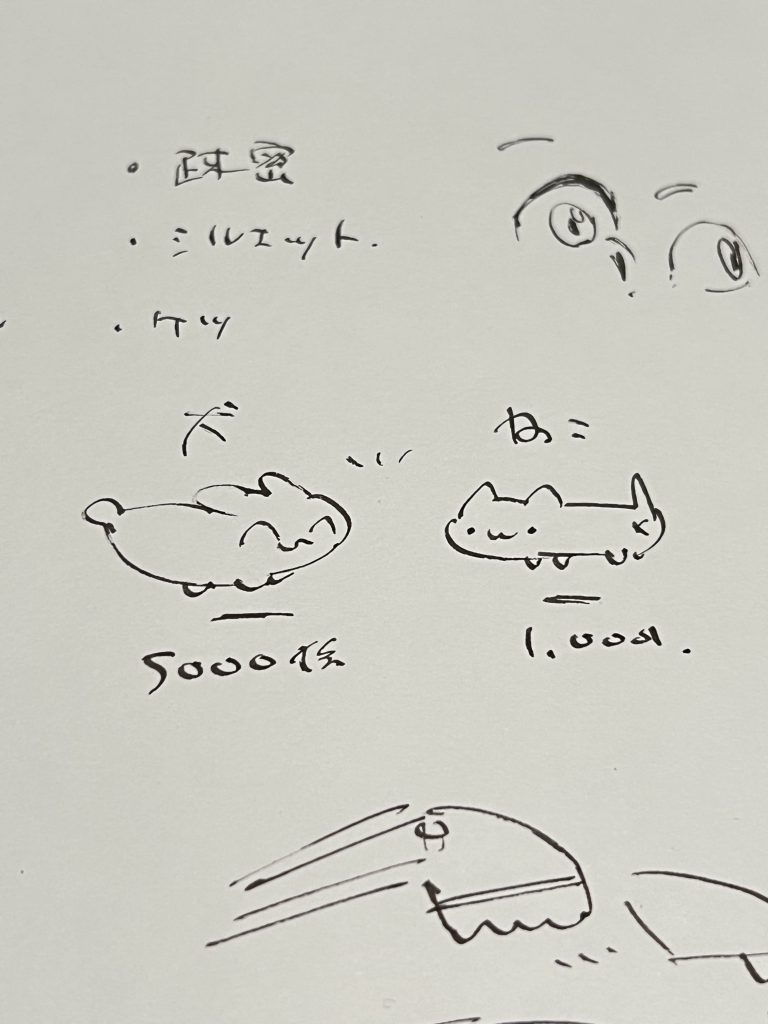 ・疎密
・シルエット.
・ケツ
犬 ねこ
5000 1.000